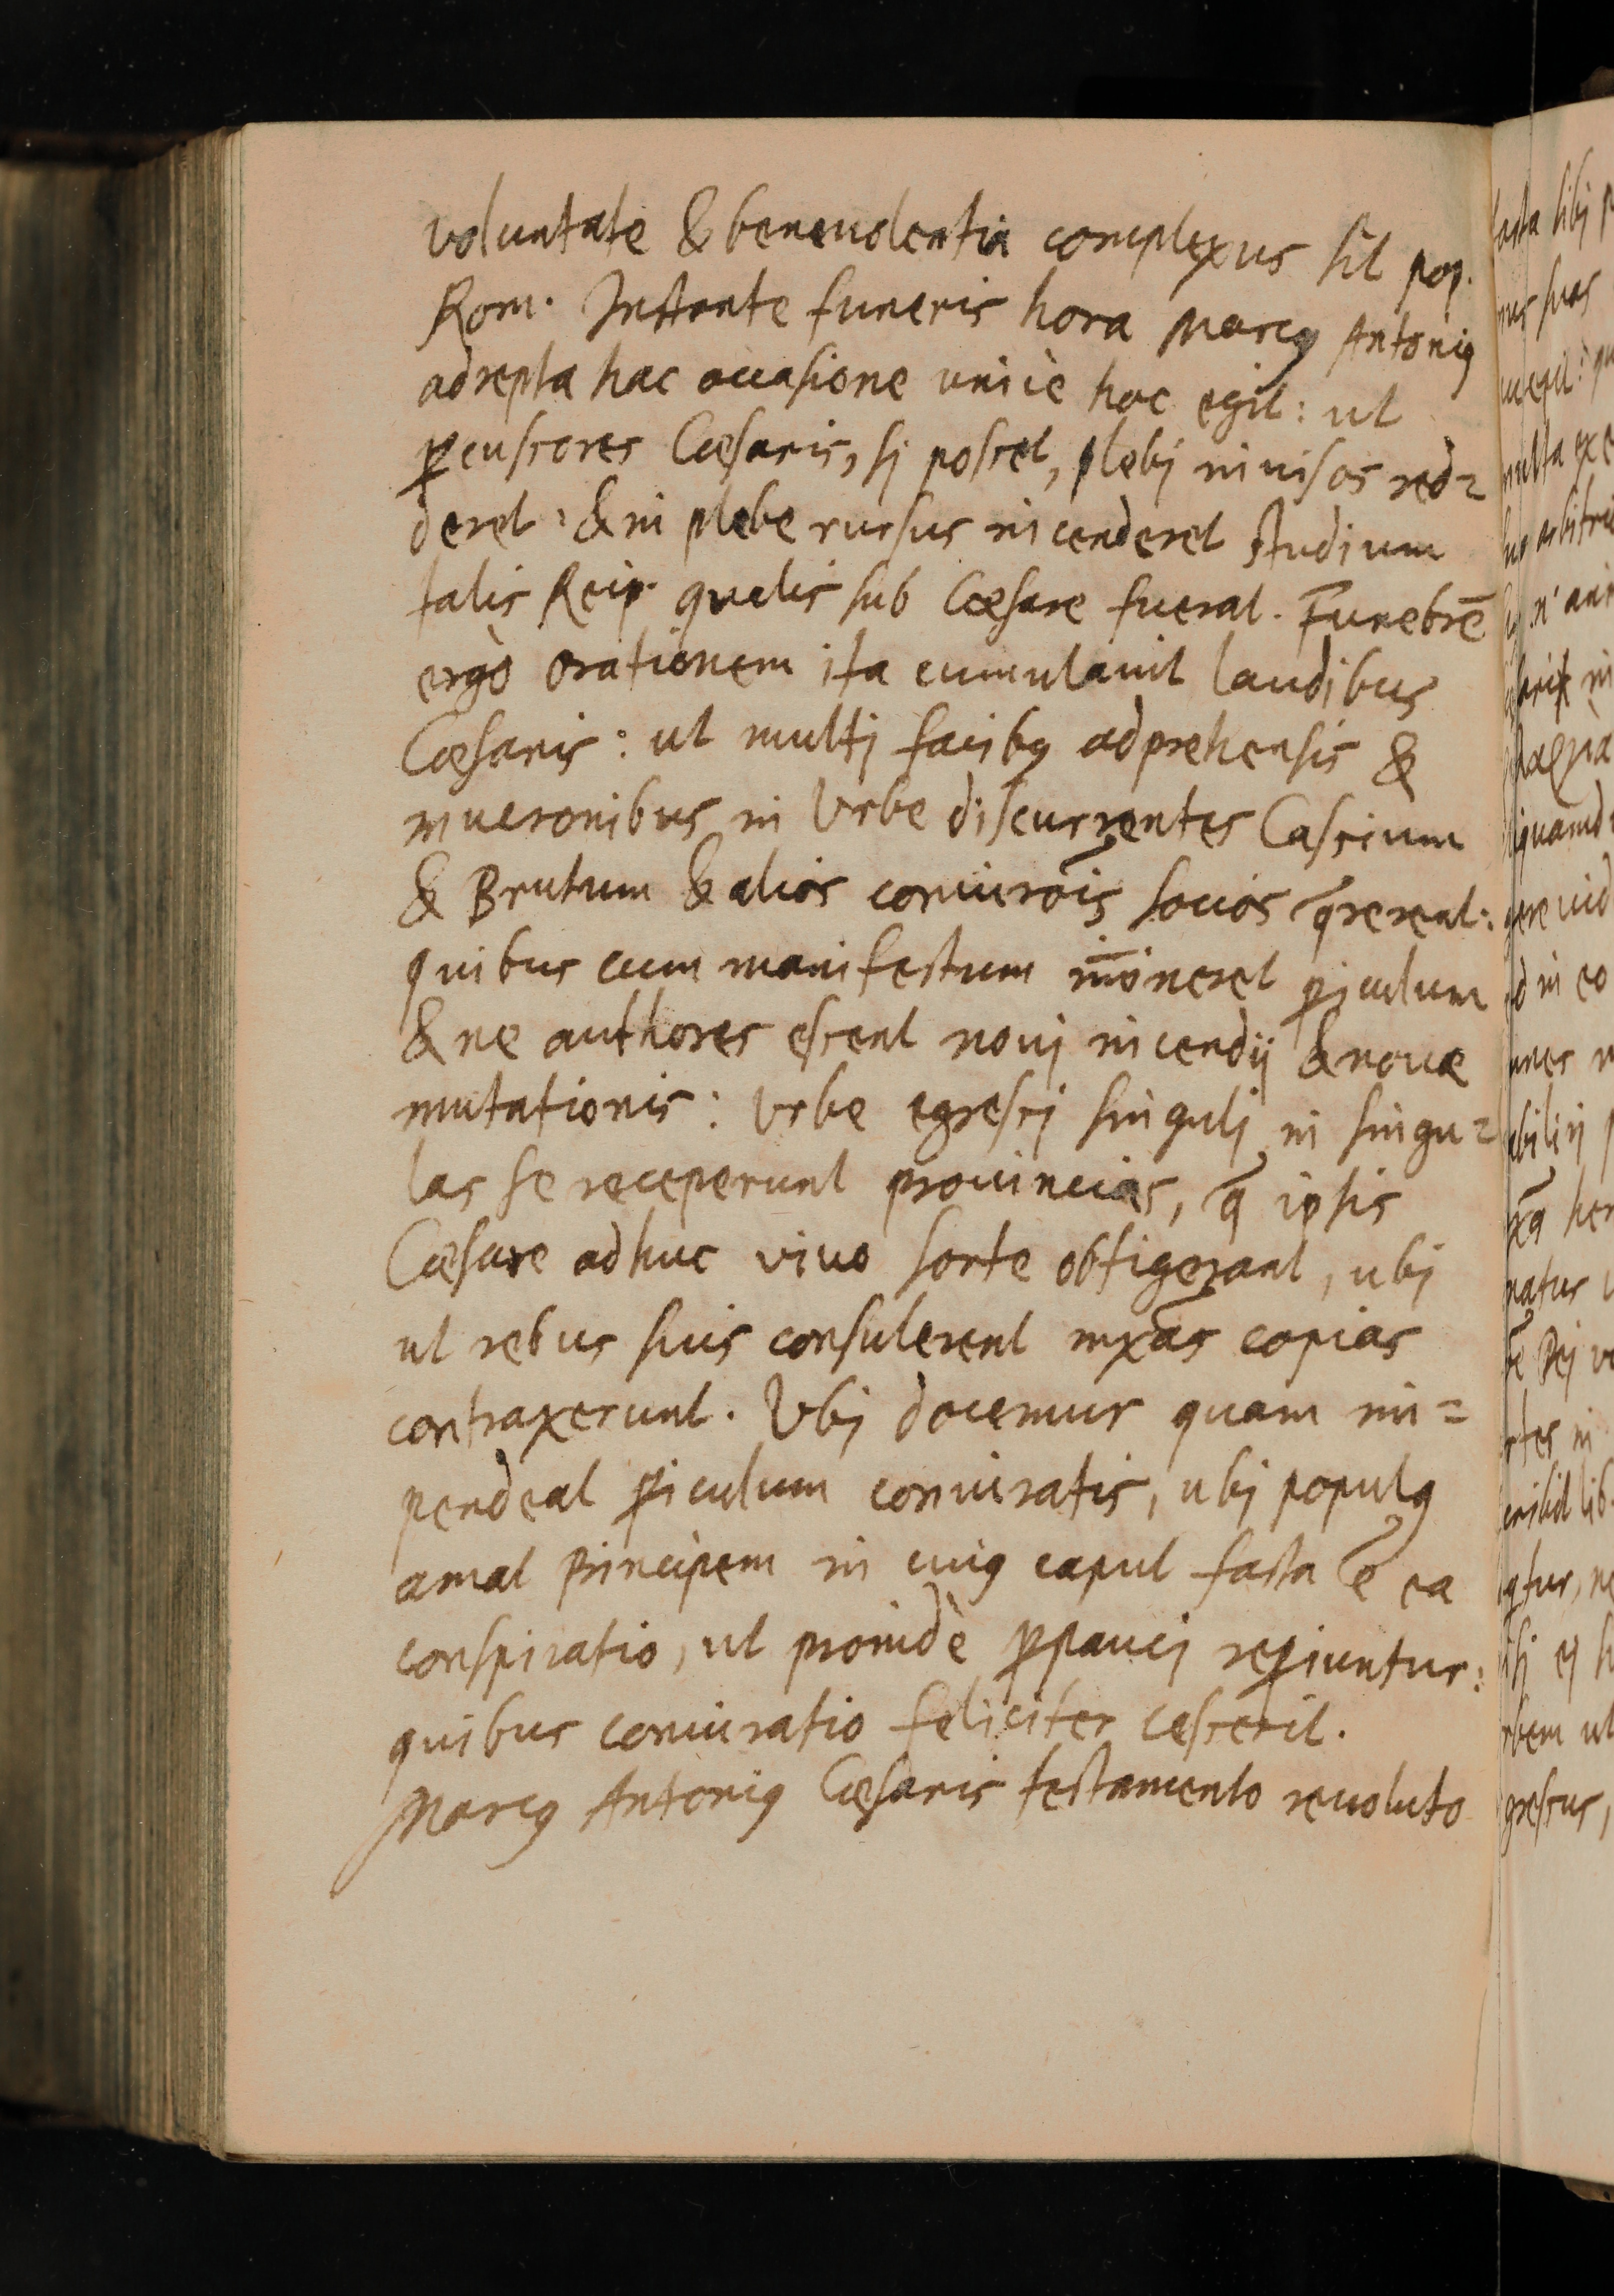 voluntate & beneuolentia complexus sit pop.
Rom. Instante funeris hora Marcꝰ Antoniꝰ
adrepta hac occasione unicè hoc egit: ut
ꝑcussores Cæsaris, sj posset, plebj inuisos red=
deret: & in plebe rursus incenderet studium
talis Reip. qualis sub Cæsare fuerat. Funebrē
ergò orationem ita cumulauit laudibus
Cæsaris: ut multj facibꝰ adprehensis &
mucronibus in Vrbe discurrentes Cassium
& Brutum & alios coniurōis socios q̄rerent:
quibus cum manifestum im̄ineret ꝑiculum
& ne authores essent nouj incendij & nouæ
mutationis: Vrbe egressj singulj in singu=
las se receperunt prouincias, q̄ ipsis
Cæsare adhuc viuo sorte obtigerant, ubj
ut rebus suis consulerent mx̄as copias
contraxerunt. Vbj docemur quam im=
pendeat ꝑiculum coniuratis, ubj populꝰ
amat Principem in cuiꝰ caput facta ē ea
conspiratio, ut proinde ꝑpaucj reꝑiuntur:
quibus coniuratio feliciter cesserit.
Marcꝰ Antoniꝰ Cæsaris testamento reuoluto